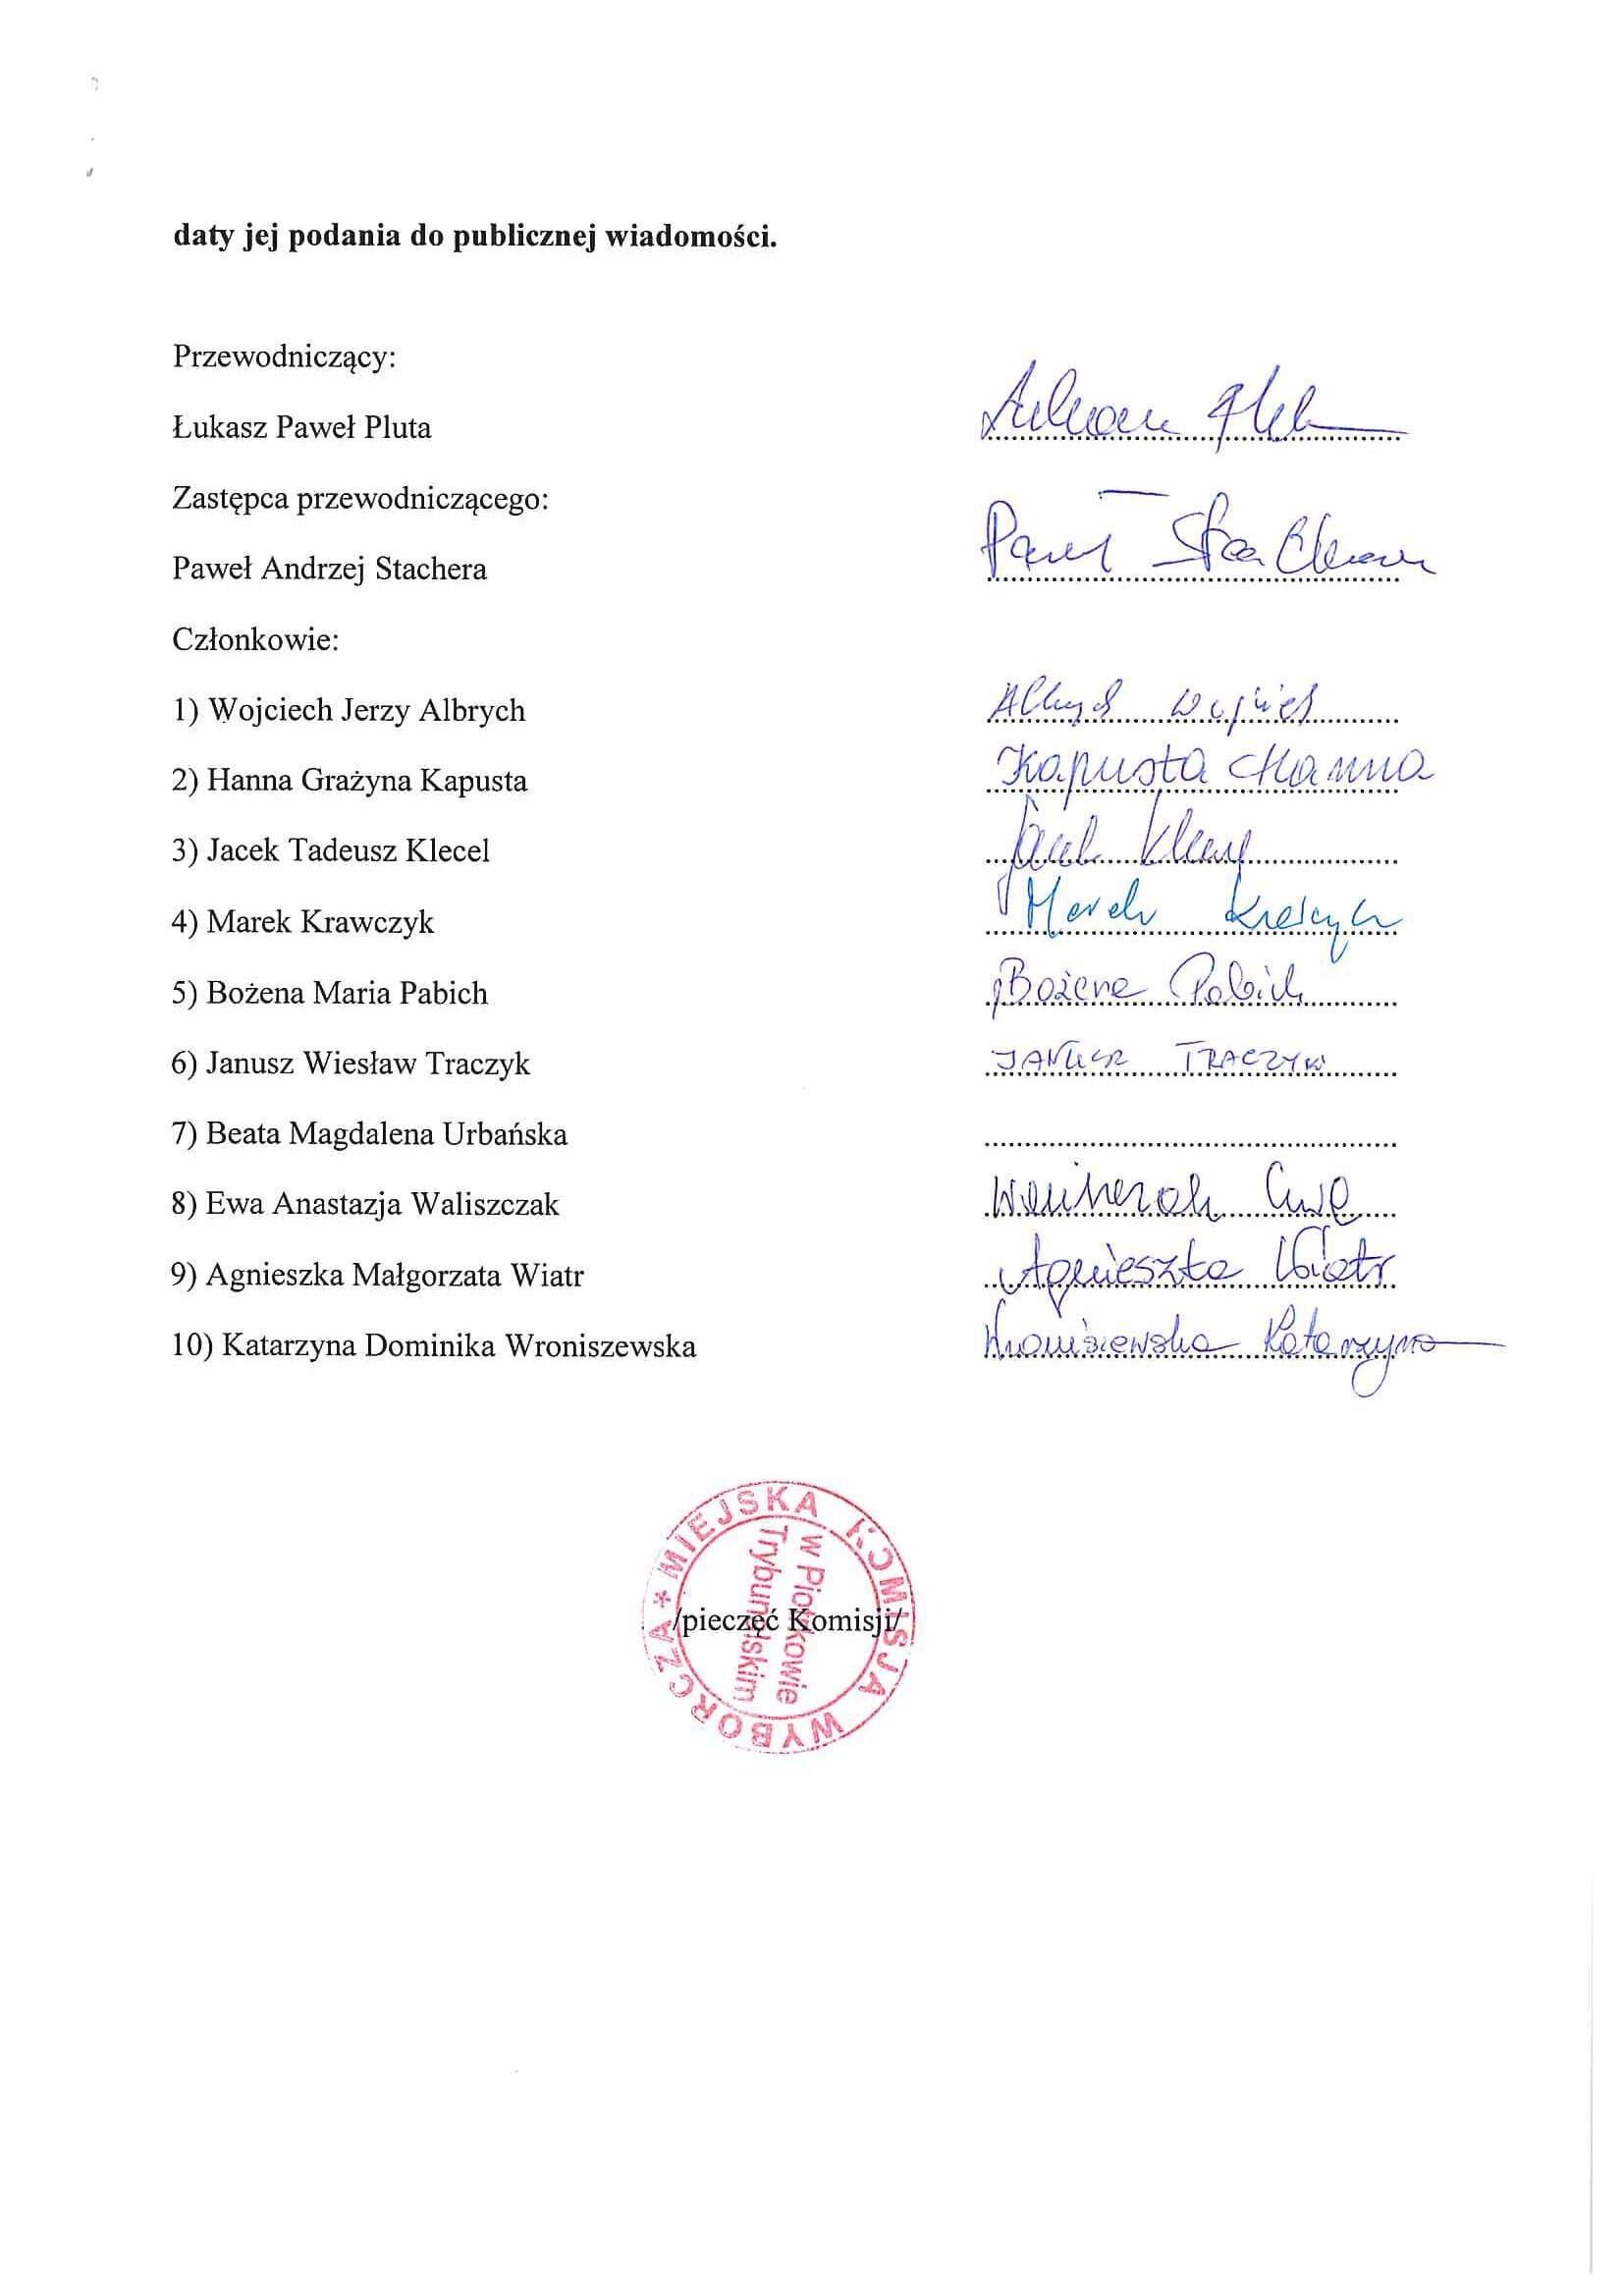 daty jej podania do publicznej wiadomości.
Przewodniczący:
Łukasz Paweł Pluta
Zastępca przewodniczącego:
Paweł Andrzej Stachera
Paweł Stachera
Członkowie:
1) Wojciech Jerzy Albrych
Albrych Wojciech
2) Hanna Grażyna Kapusta
Kapusta Hanna
3) Jacek Tadeusz Klecel
Jacek Klecel
4) Marek Krawczyk
Marek Krawczyk
5) Bożena Maria Pabich
Bożena Pabich
6) Janusz Wiesław Traczyk
JANUSZ TRACZYK
7) Beata Magdalena Urbańska
8) Ewa Anastazja Waliszczak
Ewa
9) Agnieszka Małgorzata Wiatr
Agnieszka Wiatr
10) Katarzyna Dominika Wroniszewska
Wroniszewska Katarzyna
/pieczęć Komisji/
* MIEJSKA KOMISJA WYBORCZA
w Piotrkowie
Trybunalskim